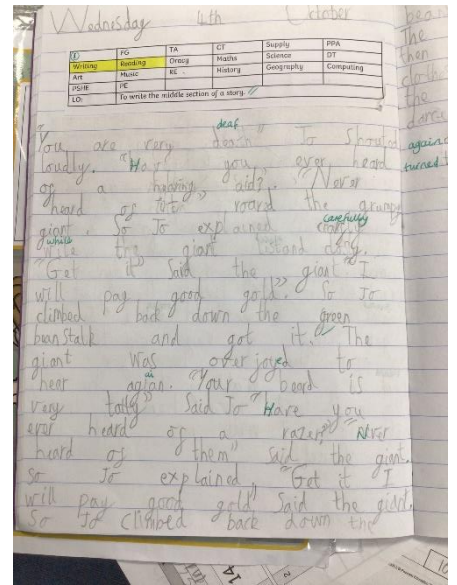 Wednesday 4th October
① FG TA CT Supply PPA
Writing Reading Oracy Maths Science DT
Art Music RE History Geography Computing
PSHE PE
LO: To write the middle section of a story.
deaf
"You are very deach" Jo Shouted
loudly. "Have you ever heard
of a hearing aid?". "Never
heard of it" roard the grumpy
carefully
giant. So Jo explained
while
wile the giant
"Get it" Said the giant "I
will pay good gold." So Jo
climbed back down the green
beanstalk and got it. The
giant was overjoyed to
ai
hear agian. "Your beard is
very tatty" Said Jo "Have you
ever heard of a razer" "Never
heard of them" said the giant.
so Jo explained, "Get it I
will pay good gold" Said the giant.
So Jo climbed back down the
The
then
cloth
the
again
turned